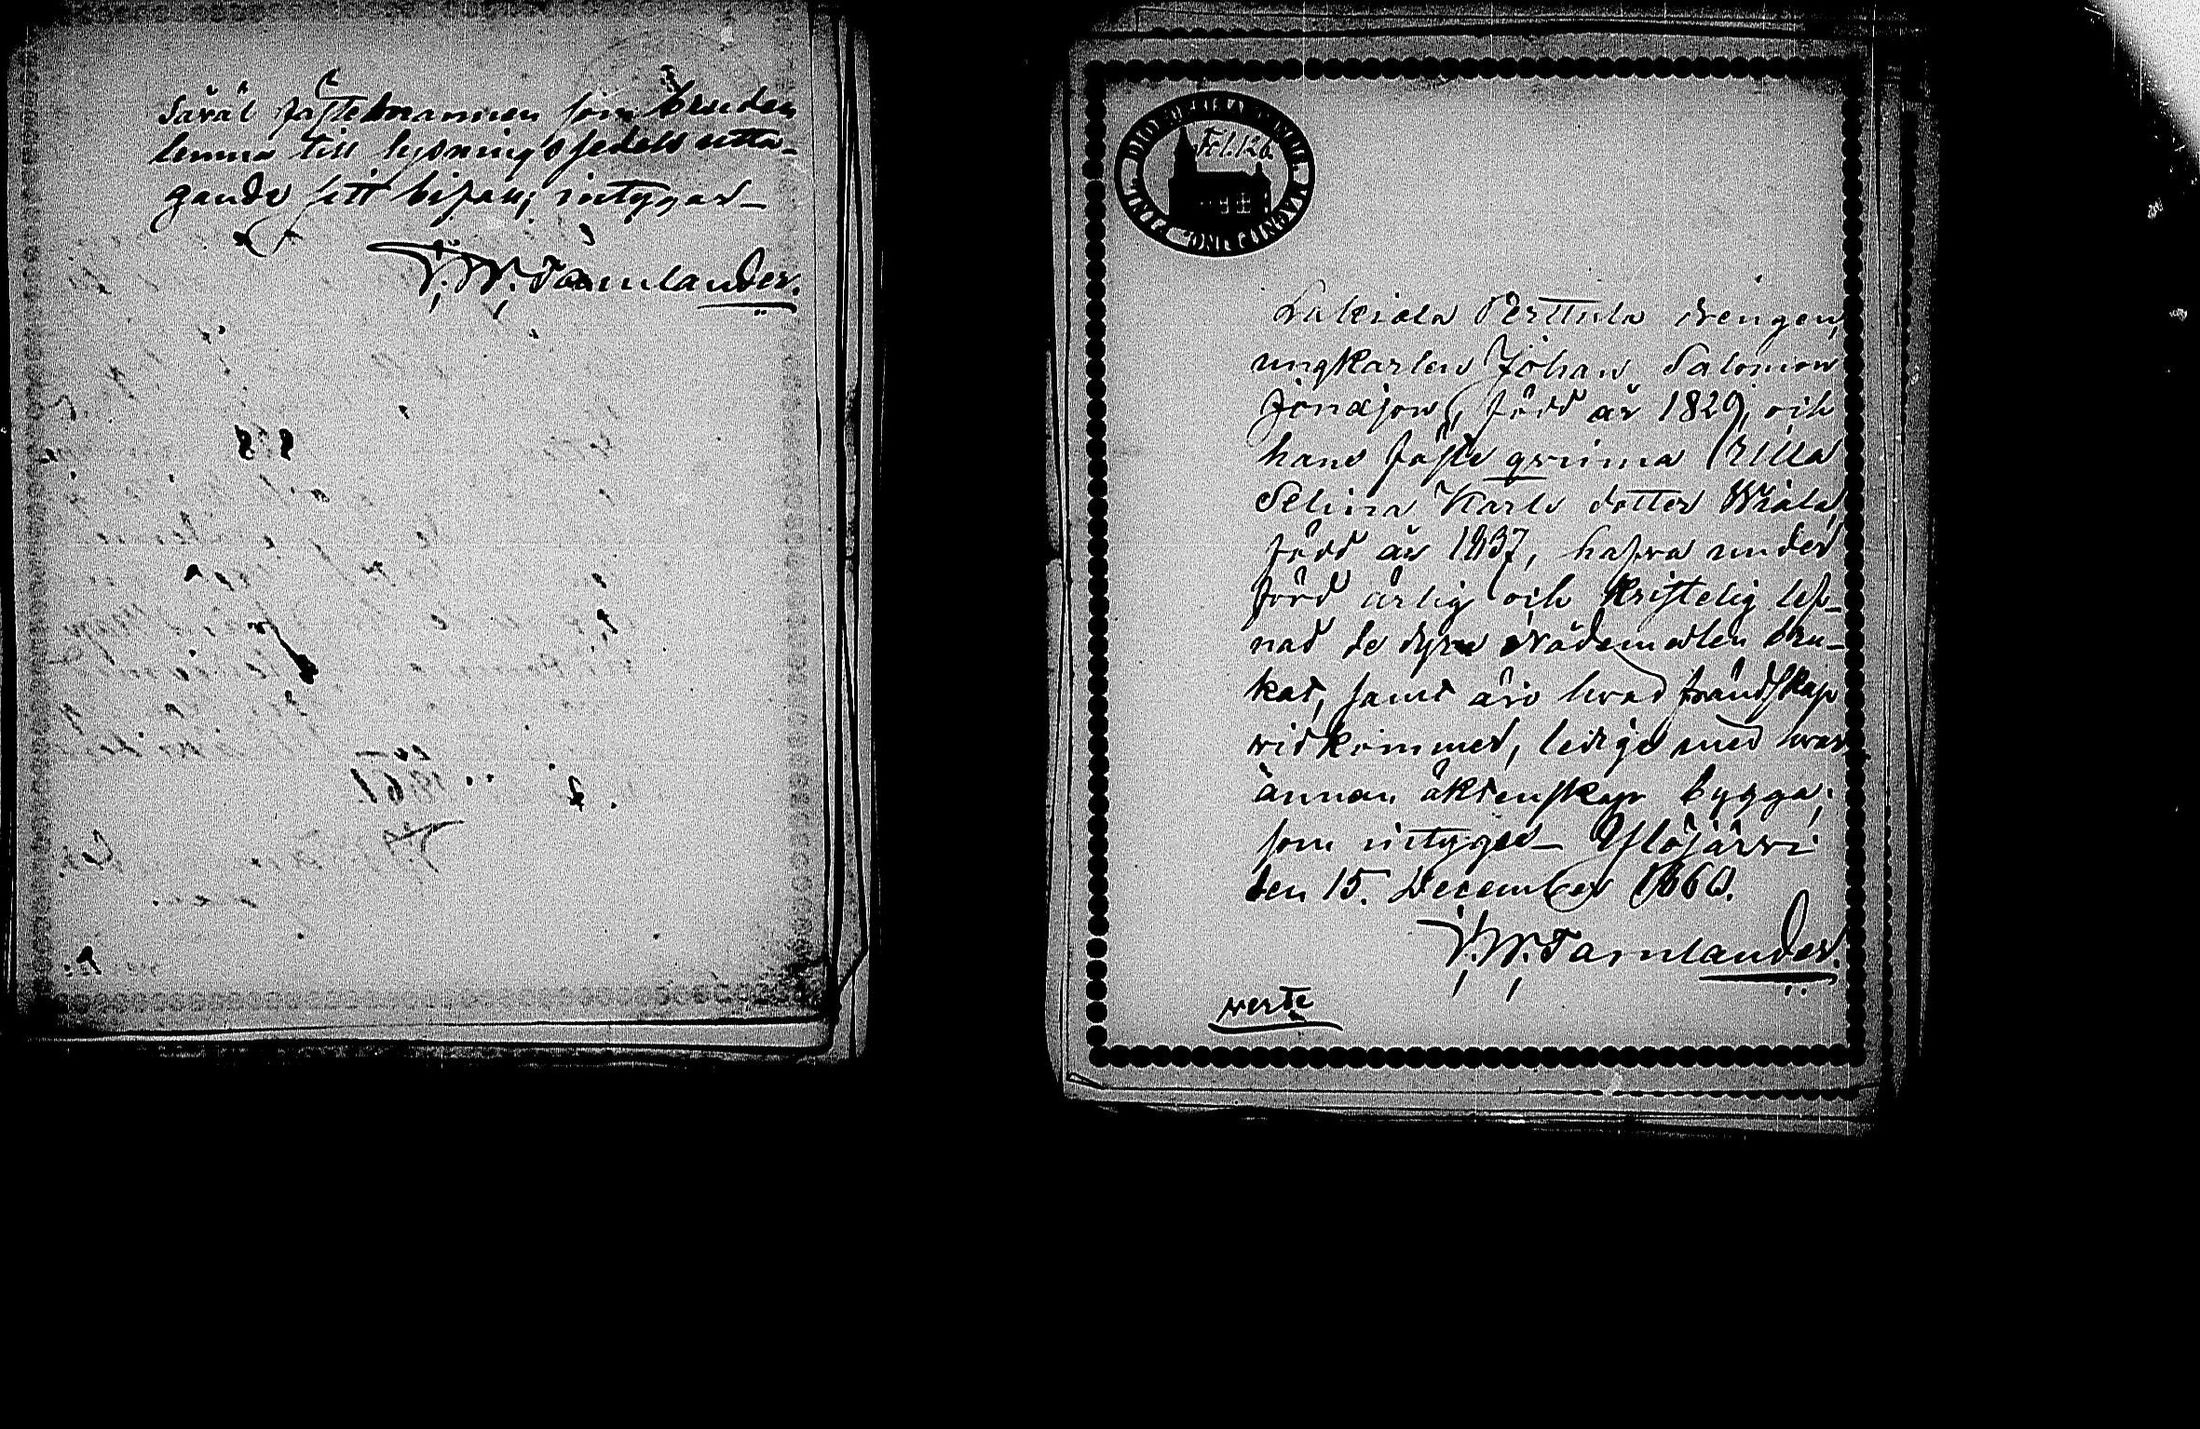 såväl fästemannen som bruden
lemna till lysningssedels utta-
gande sitt bifall, intygar
F. W. Tamlander.
Fol. 126.
Lakiala Perttula drängen,
ungkarlen Johan Salomon
Jonasson, född år 1829, och
hans fästeqvinna Ulla
Selina Karls dotter Wiala,
född år 1837, hafva under
förd ärlig och kristelig lef-
nad de dyra Nådemedlen bru-
kat, samt äro hvad frändskap
vidkommer, lediga med hvar
annan äktenskap bygga;
som intygar Ylöjärvi
den 15. December 1860.
F. W. Tamlander.
verte